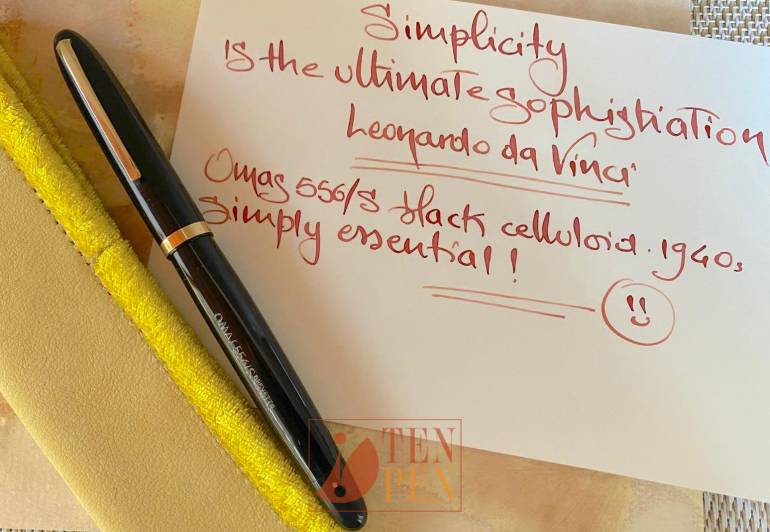 Simplicity
is the ultimate sophistiation
Leonardo da Vinci
Omas 556/S black celluloid. 1940s
Simply essential!
OMAS 556/S
TEN
PEN